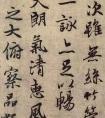 次雖無絲竹管
一詠上足以暢
天朗氣清惠風
之大俯察品類